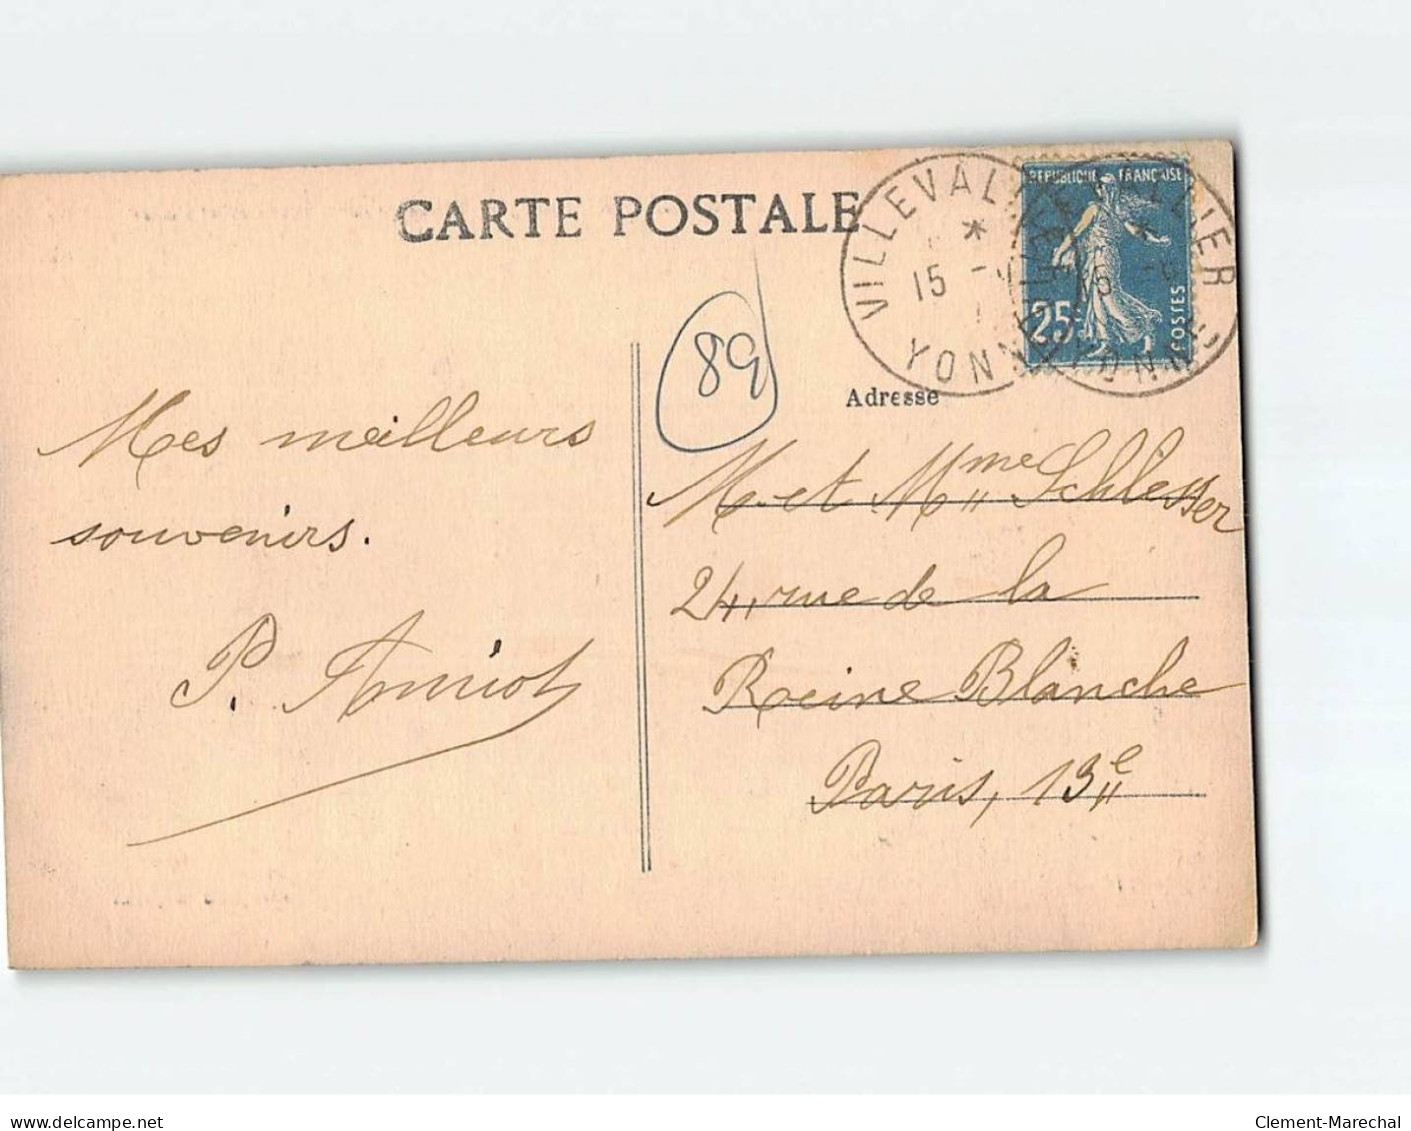 CARTE POSTALE
VILLEVALLIER
15
YONNE
REPUBLIQUE FRANÇAISE
25c
POSTES
89
Adresse
Mes meilleurs
souvenirs.
P. Amiot
M. et Mme Schlesser
24, rue de la
Reine Blanche
Paris, 13e
delcampe.net
Clement-Marechal